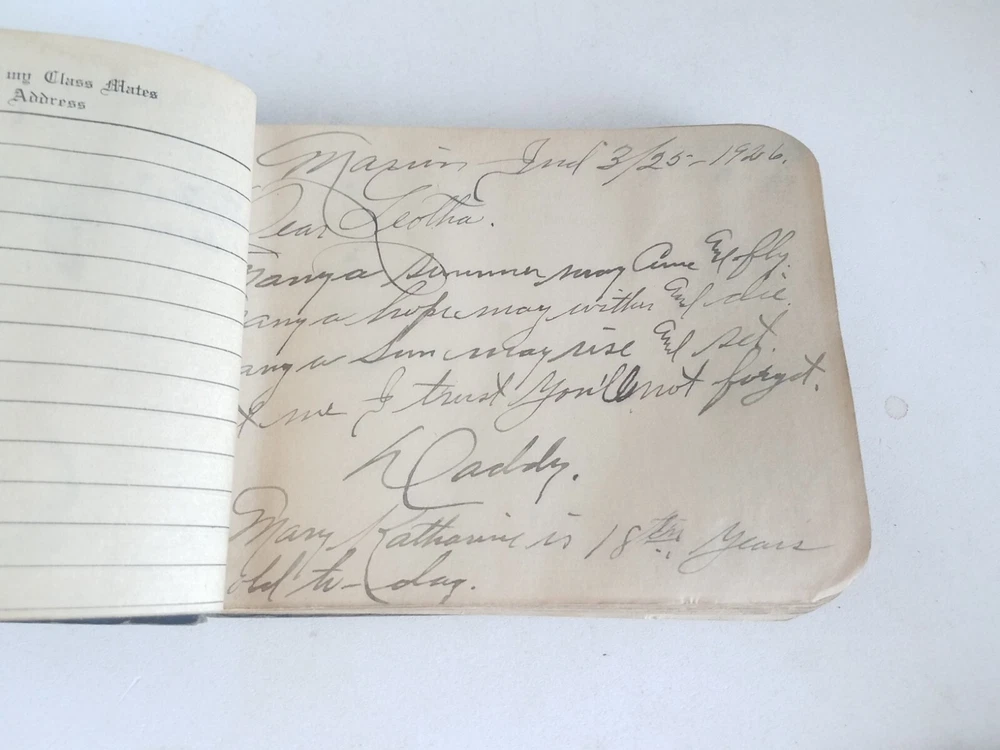 my Class Mates
Address
Marion Ind 3/25-1926.
Dear Leotha.
Many a summer may Come And fly.
any a hope may wither And die.
any a Sun may rise And set.
t me I trust You'll not forget.
Daddy.
Mary Katharine is 18th Years
old to-day.